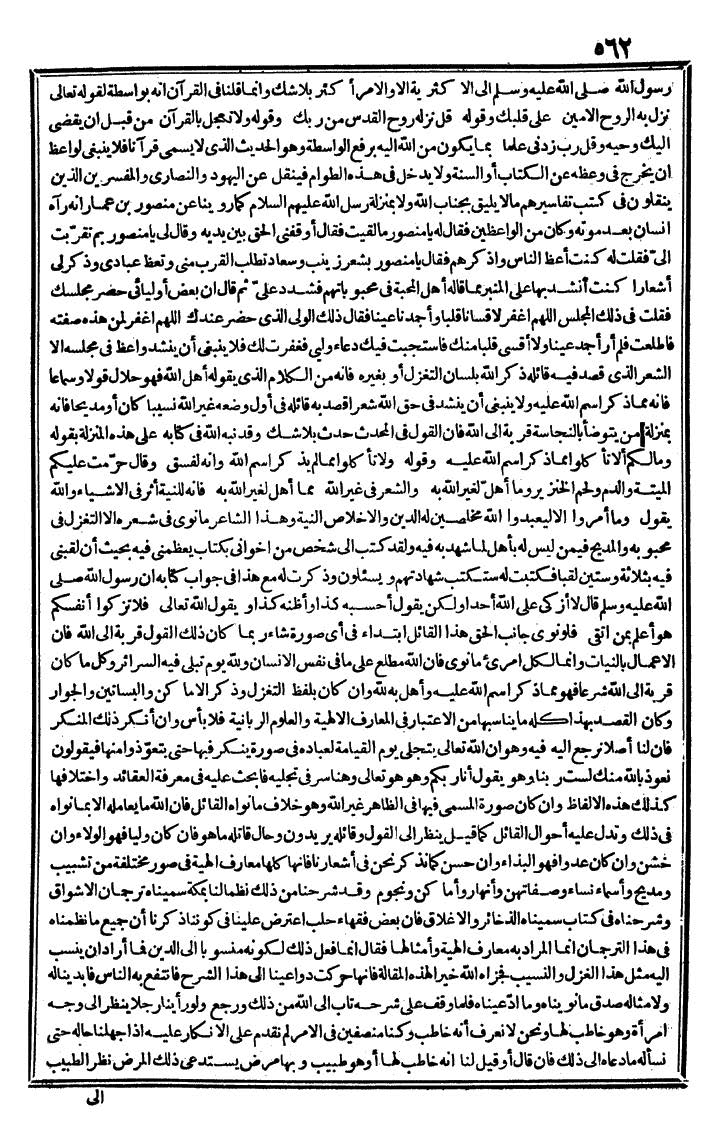 ٥٦٢
رسول الله صلى الله عليه وسلم الى الاكثرية الا والامر أكثر بلاشك وانما قلنا فى القرآن انه بواسطة لقوله تعالى
نزل به الروح الامين على قلبك وقوله قل نزله روح القدس من ربك وقوله ولا تعجل بالقرآن من قبل ان يقضى
اليك وحيه وقل رب زدنى علما بما يكون من الله اليه برفع الواسطة وهو الحديث الذى لا يسمى قرآنا فلا ينبغى لواعظ
ان يخرج فى وعظه عن الكتاب أو السنة ولا يدخل فى هذه الطوام فينقل عن اليهود والنصارى والمفسرين الذين
ينقلون فى كتب تفاسيرهم مالا يليق بجناب الله ولا بمنزلة رسل الله عليهم السلام كما روينا عن منصور بن عمار انه رآه
انسان بعد موته وكان من الواعظين فقال له يا منصور ما لقيت فقال أوقفنى الحق بين يديه وقال لى يا منصور بم تقرّبت
الىّ فقلت له كنت أعظ الناس واذكرهم فقال يا منصور بشعر زينب وسعاد تطلب القرب منى وتعظ عبادى وذكر لى
أشعارا كنت أنشد بها على المنبر مما قاله أهل المحبة فى محبوباتهم فشدد علىّ ثم قال ان بعض أوليائى حضر مجلسك
فقلت فى ذلك المجلس اللهم اغفر لأقسانا قلبا وأجدنا عينا فقال ذلك الولى الذى حضر عندك اللهم اغفر لمن هذه صفته
فاطلعت فلم أر أجد عينا ولا أقسى قلبا منك فاستجبت فيك دعاء وليى فغفرت لك فلا ينبغى أن ينشد واعظ فى مجلسه الا
الشعر الذى قصد فيه قائله ذكر الله بلسان التغزل أو بغيره فانه من الكلام الذى يقوله أهل الله فهو حلال قولا وسماعا
فانه مما ذكر اسم الله عليه ولا ينبغى أن ينشد فى حق الله شعرا قصد به قائله فى أول وضعه غير الله نسيبا كان أو مديحا فانه
بمنزلة من يتوضأ بالنجاسة قربة الى الله فان القول فى المحدث حدث بلاشك وقد نبه الله فى كتابه على هذه المنزلة بقوله
ومالكم ألا تأكلوا مما ذكر اسم الله عليه وقوله ولا تأكلوا مما لم يذكر اسم الله وانه لفسق وقال حرّمت عليكم
الميتة والدم ولحم الخنزير وما أهلّ لغير الله به والشعر فى غير الله مما أهل لغير الله به فانه للنية أثر فى الاشياء والله
يقول وما أمروا الا ليعبدوا الله مخلصين له الدين والاخلاص النية وهذا الشاعر ما نوى فى شعره الا التغزل فى
محبوبه والمديح فيمن ليس له بأهل لما شهد به فيه ولقد كتب الى شخص من اخوانى بكتاب يعظمنى فيه بحيث أن لقبنى
فيه بثلاثة وستين لقبا فكتبت له ستكتب شهادتهم ويسئلون وذكرت له مع هذا فى جواب كتابه ان رسول الله صلى
الله عليه وسلم قال لا أزكى على الله أحدا ولكن يقول أحسبه كذا وأظنه كذا ويقول الله تعالى فلا تزكوا أنفسكم
هو أعلم بمن اتقى فلو نوى جانب الحق هذا القائل ابتداء فى أى صورة شاء ربما كان ذلك القول قربة الى الله فان
الاعمال بالنيات وانما لكل امرئ ما نوى فان الله مطلع على ما فى نفس الانسان ولله يوم تبلى فيه السرائر وكل ما كان
قربة الى الله شرعا فهو مما ذكر اسم الله عليه وأهل به لله وان كان بلفظ التغزل وذكر الاماكن والبساتين والجوار
وكان القصد بهذا كله ما يناسبها من الاعتبار فى المعارف الالهية والعلوم الربانية فلا بأس وان أنكر ذلك المنكر
فان لنا أصلا نرجع اليه فيه وهو ان الله تعالى يتجلى يوم القيامة لعباده فى صورة ينكر فيها حتى يتعوّذوا منها فيقولون
نعوذ بالله منك لست ربنا وهو يقول أنا ربكم وهو هو تعالى وهنا سر فى تجليه فابحث عليه فى معرفة العقائد واختلافها
كذلك هذه الالفاظ وان كان صورة المسمى فيها فى الظاهر غير الله وهو خلاف ما نواه القائل فان الله ما يعامله الا بما نواه
فى ذلك وتدل عليه أحوال القائل كما قيل ينظر الى القول وقائله يريدون وحال قائله ما هو فان كان وليا فهو الولاء وان
خشن وان كان عدوا فهو البذاء وان حسن كما نذكر نحن فى أشعارنا فانها كلها معارف الهية فى صور مختلفة من تشبيب
ومديح وأسماء نساء وصفاتهن وأنهار وأماكن ونجوم وقد شرحنا من ذلك نظما لنا بمكة سميناه ترجمان الاشواق
وشرحناه فى كتاب سميناه الذخائر والاغلاق فان بعض فقهاء حلب اعترض علينا فى كوننا ذكرنا أن جميع ما نظمناه
فى هذا الترجمان انما المراد به معارف الهية وأمثالها فقال انما فعل ذلك لكونه منسوبا الى الدين فما أراد ان ينسب
اليه مثل هذا الغزل والنسيب فجزاه الله خيرا لهذه المقالة فانها حركت دواعينا الى هذا الشرح فانتفع به الناس فابدينا له
ولامثاله صدق ما نويناه وما ادّعيناه فلما وقف على شرحه تاب الى الله من ذلك ورجع ولو رأينا رجلا ينظر الى وجه
امرأة وهو خاطب لها ونحن لا نعرف أنه خاطب وكنا منصفين فى الامر لم نقدم على الانكار عليه اذا جهلنا حاله حتى
نسأله ما دعاه الى ذلك فان قال أو قيل لنا انه خاطب لها أو هو طبيب وبها مرض يستدعى ذلك المرض نظر الطبيب
الى